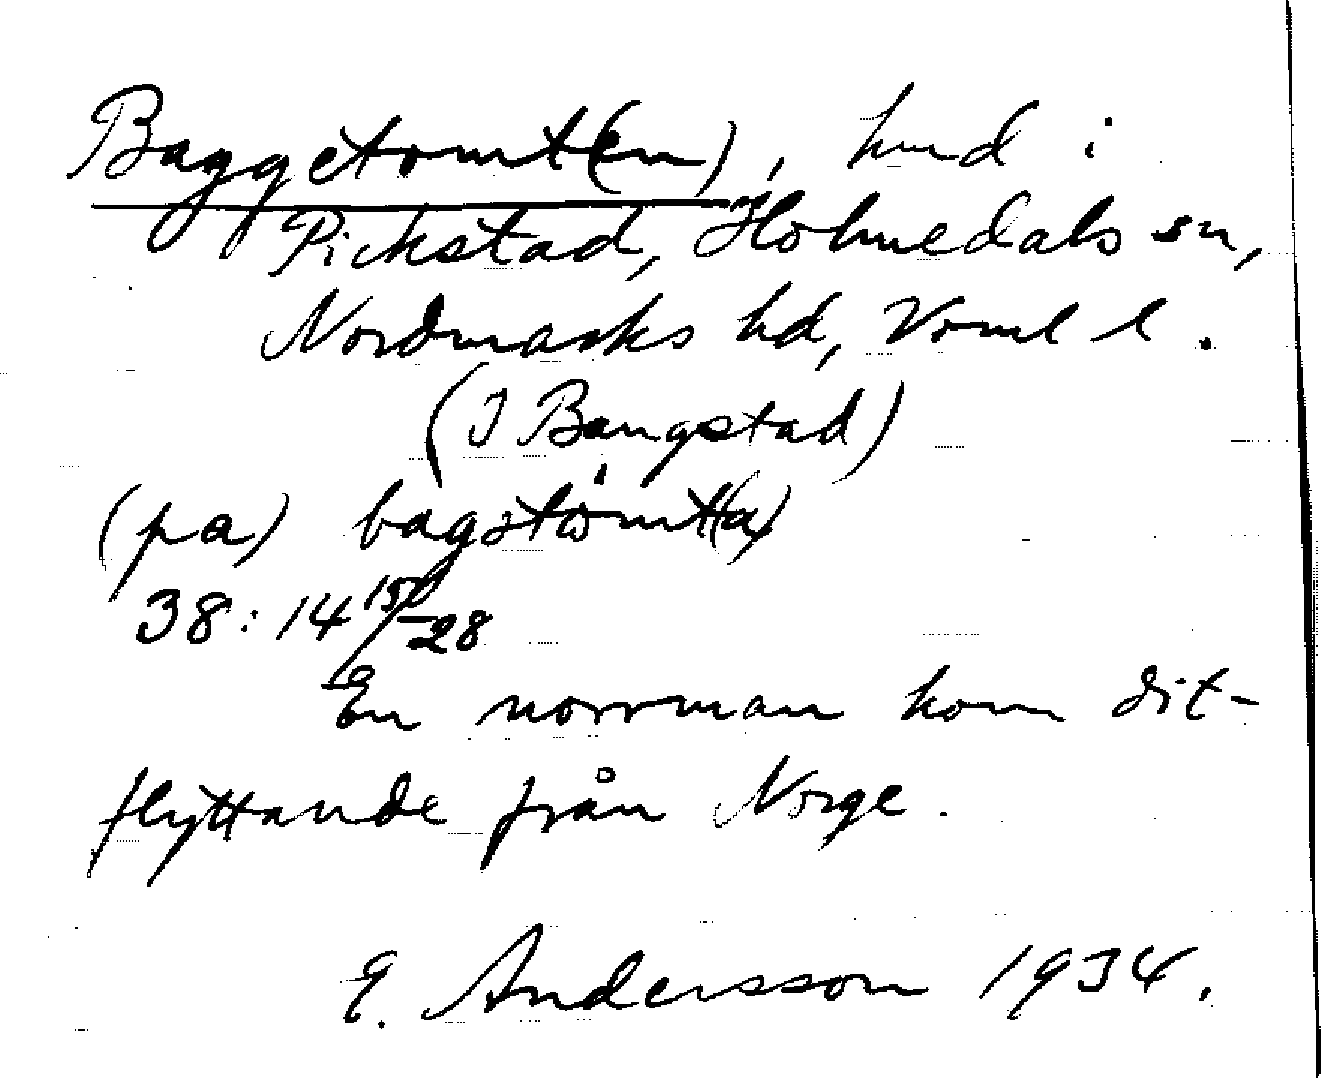 Baggetomt(en), hmd i
Pickstad, Holmedals sn,
Nordmarks hd, Vrml l.
(I Bongstad)
(pa) bagstomt(a)
38:14 15/5-28
En norrman kom dit-
flyttande från Norge.
E. Andersson 1934.